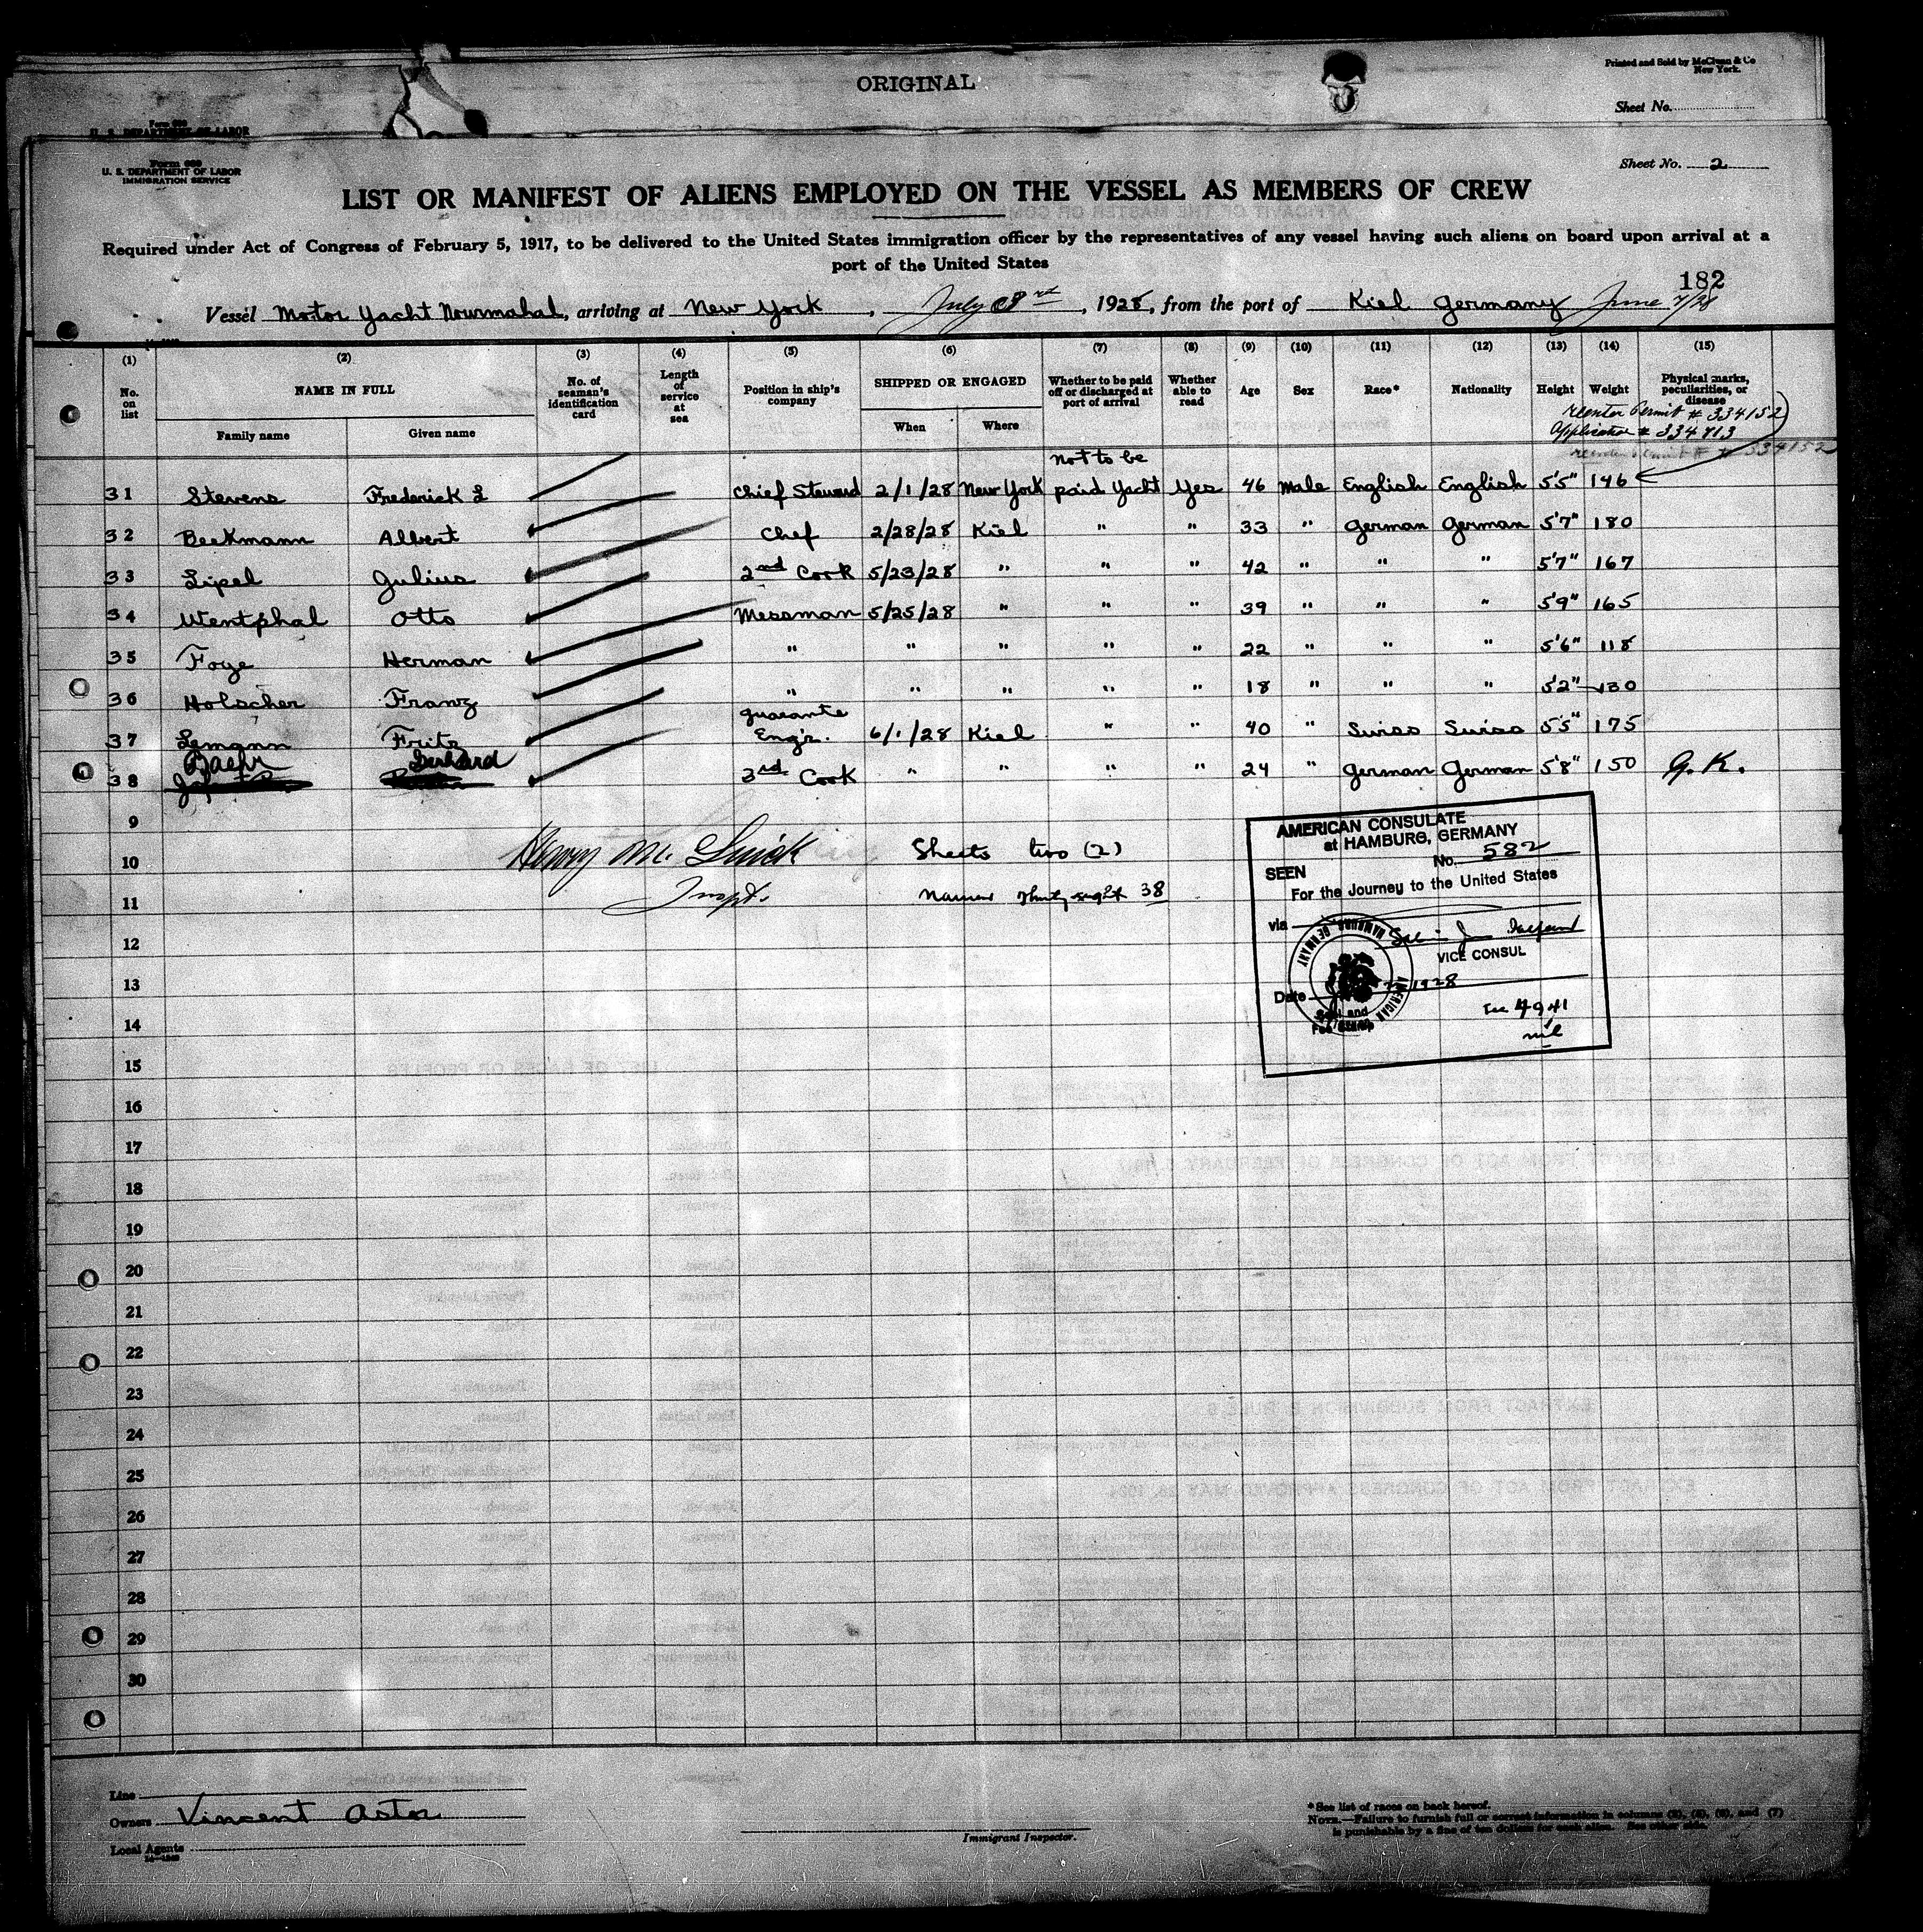 ORIGINAL
Printed and Sold by McClunn & Co
New York.
Sheet No.
Form 689
U. S. DEPARTMENT OF LABOR
Form 689
U. S. DEPARTMENT OF LABOR
IMMIGRATION SERVICE
Sheet No. 2
LIST OR MANIFEST OF ALIENS EMPLOYED ON THE VESSEL AS MEMBERS OF CREW
Required under Act of Congress of February 5, 1917, to be delivered to the United States immigration officer by the representatives of any vessel having such aliens on board upon arrival at a
port of the United States
182
Vessel Motor Yacht Nourmahal, arriving at New York, July 3rd, 1928, from the port of Kiel Germany June 7/28
(1) (2) (3) (4) (5) (6) (7) (8) (9) (10) (11) (12) (13) (14) (15)
No. on list NAME IN FULL No. of seaman's identification card Length of service at sea Position in ship's company SHIPPED OR ENGAGED Whether to be paid off or discharged at port of arrival Whether able to read Age Sex Race* Nationality Height Weight Physical marks, peculiarities, or disease
Family name Given name When Where
reenter Permit # 334152
Application # 334713
reenter permit # 334152
not to be
31 Stevens Frederick L Chief Steward 2/1/28 New York paid Yacht Yes 46 Male English English 5'5" 146
32 Beekmann Albert Chef 2/28/28 Kiel " " 33 " German German 5'7" 180
33 Lipel Julius 2nd Cook 5/23/28 " " " 42 " " " 5'7" 167
34 Wentphal Otto Messman 5/25/28 " " " 39 " " " 5'9" 165
35 Foge Herman " " " " " 22 " " " 5'6" 118
36 Holscher Franz " " " " " 18 " " " 5'2" 130
37 Lemann Fritz guarante Engr. 6/1/28 Kiel " " 40 " Swiss Swiss 5'5" 175
38 Baehr Gerhard 3rd Cook " " " " 24 " German German 5'8" 150 G.K.
9
10 Henry M. Sheets two (2)
11 Inspt. Names thirty eight 38
12
13
14
15
16
17
18
19
20
21
22
23
24
25
26
27
28
29
30
AMERICAN CONSULATE
at HAMBURG, GERMANY
No. 582
SEEN
For the Journey to the United States
via
VICE CONSUL
HAMBURG, GERMANY
AMERICAN
Date 1928
Seal and
Fee Stamp
4941
nil
Line
Owners Vincent Astor
Local Agents
Immigrant Inspector.
*See list of races on back hereof.
NOTE.—Failure to furnish full or correct information in columns (2), (5), (6), and (7)
is punishable by a fine of ten dollars for each alien. See other side.